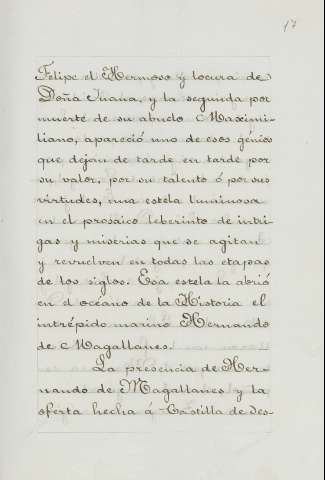 17
Felipe el Hermoso y locura de
Doña Juana, y la segunda por
muerte de su abuelo Maximi-
liano, apareció uno de esos génios
que dejan de tarde en tarde por
su valor, por su talento ó por sus
virtudes, una estela luminosa
en el prosaico leberinto de intri-
gas y miserias que se agitan
y revuelven en todas las etapas
de los siglos. Esa estela la abrió
en el océano de la Historia el
intrépido marino Hernando
de Magallanes.
La presencia de Her-
nando de Magallanes y la
oferta hecha á Castilla de des-